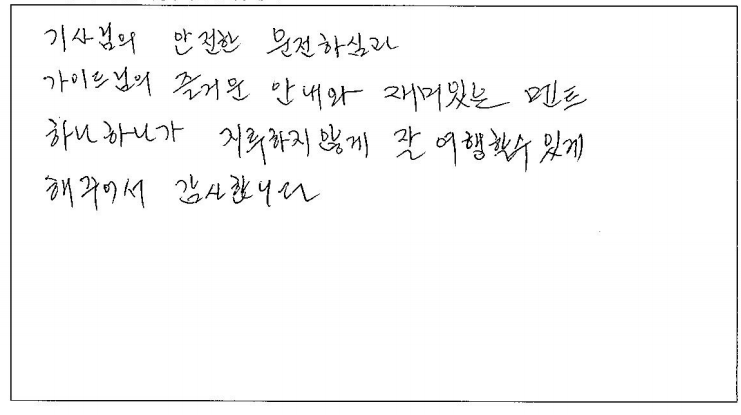 기사님의 안전한 운전하심과
가이드님의 즐거운 안내와 재미있는 멘트
하나하나가 지루하지않게 잘 여행할수 있게
해주어서 감사합니다